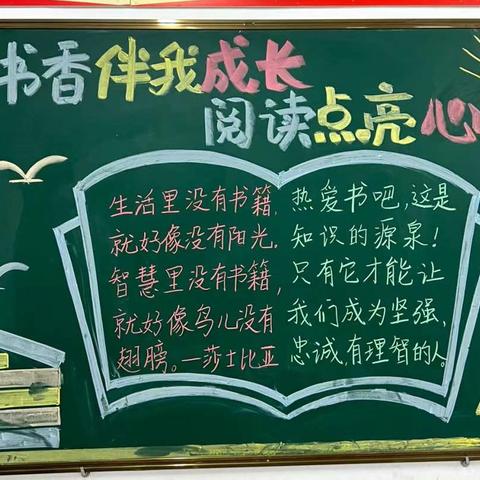 书香伴我成长
阅读点亮心
生活里没有书籍,
就好像没有阳光.
智慧里没有书籍,
就好像鸟儿没有
翅膀。—莎士比亚
热爱书吧,这是
知识的源泉!
只有它才能让
我们成为坚强、
忠诚,有理智的人。